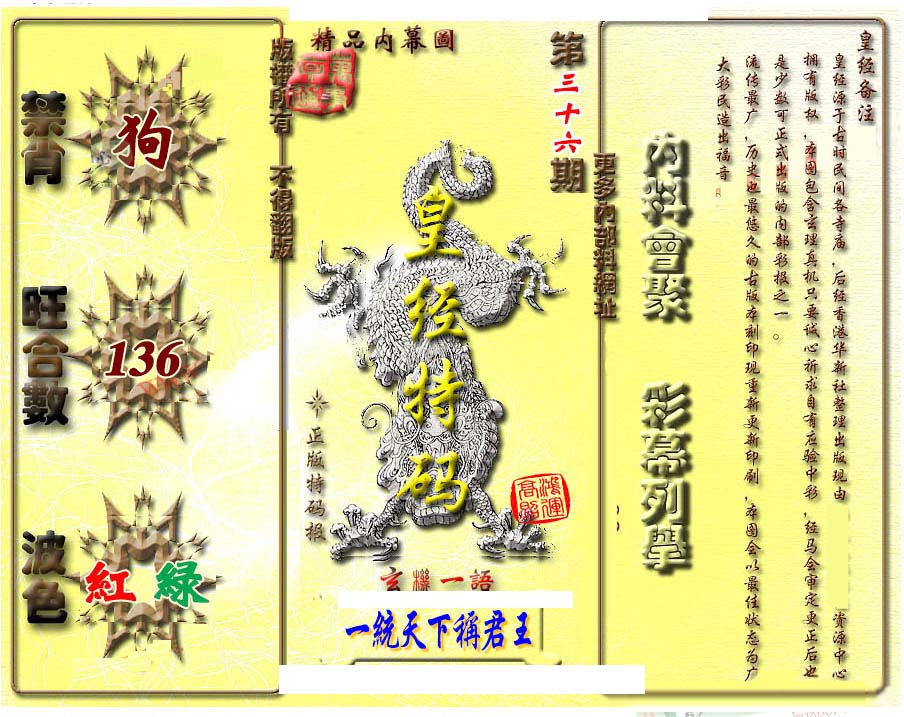 皇经备注
皇经源于古时民间各寺庙,后经香港华新社整理出版现由 资源中心
拥有版权,本图包含玄理真机只要诚心祈求自有应验中彩,经马会审定更正后也
是少数可正式出版的内部彩报之一。
流传最广,历史也最悠久的古版本刻印现重新更新印刷,本图会以最佳状态为广
大彩民造出福音
內料會聚 彩幕列舉
更多內部料網址
第三十六期
精品内幕圖
皇经特码
正版特码报
鴻運
高照
玄機一語
一統天下稱君王
版權所有 不得翻版
禁肖
狗
旺合數
136
波色
紅 綠